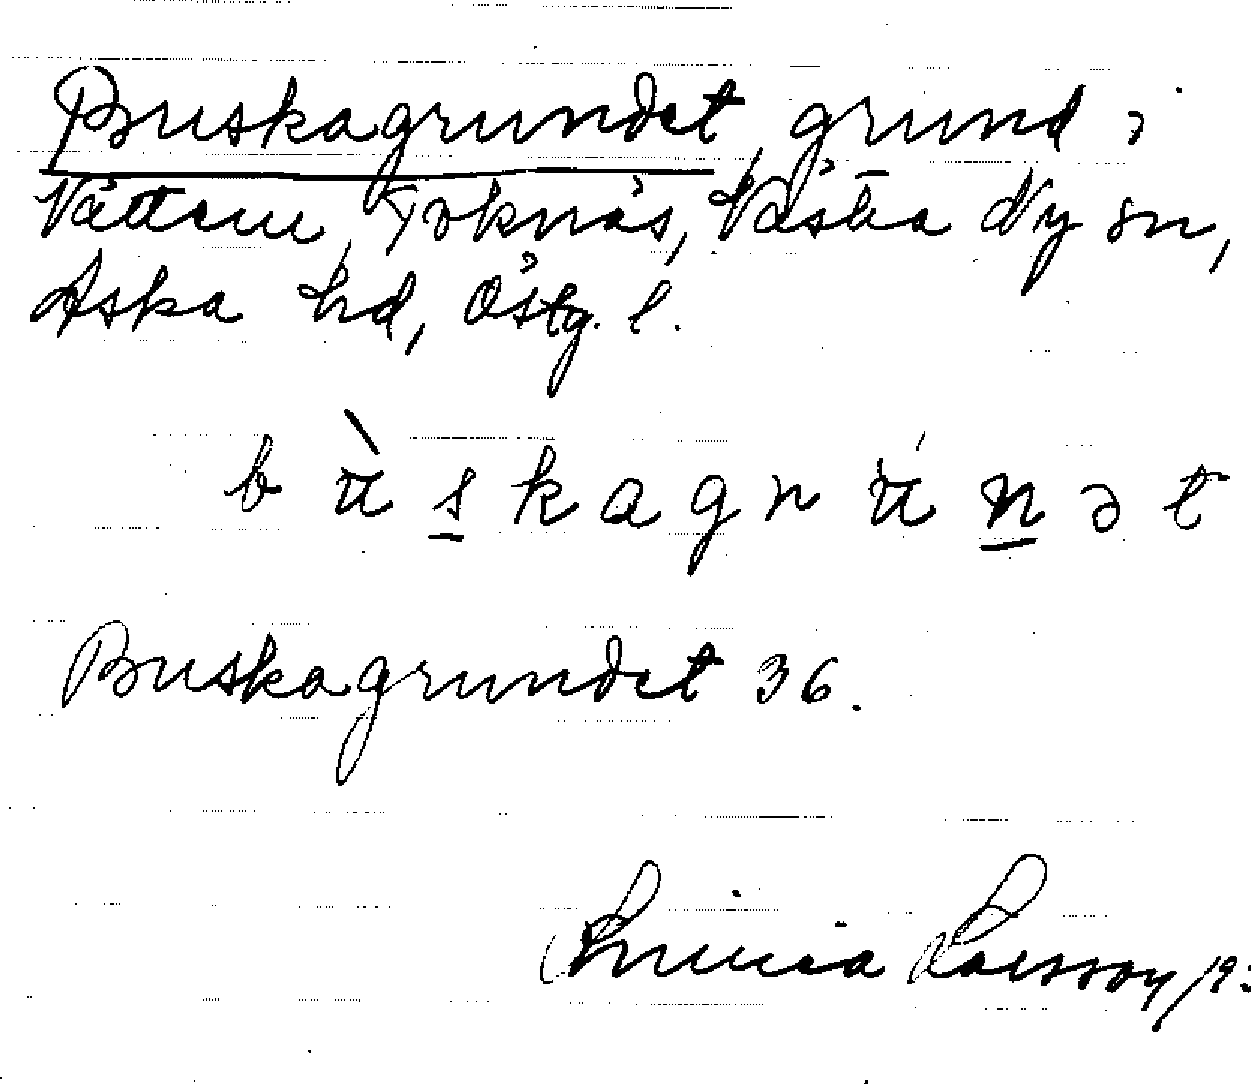 Buskagrundet, grund i
Vättern, Torknäs, Västra Ny sn,
Aska hd, Östg. l.
b ù s k a g r ú n ə t
Buskagrundet 36.
Larsson